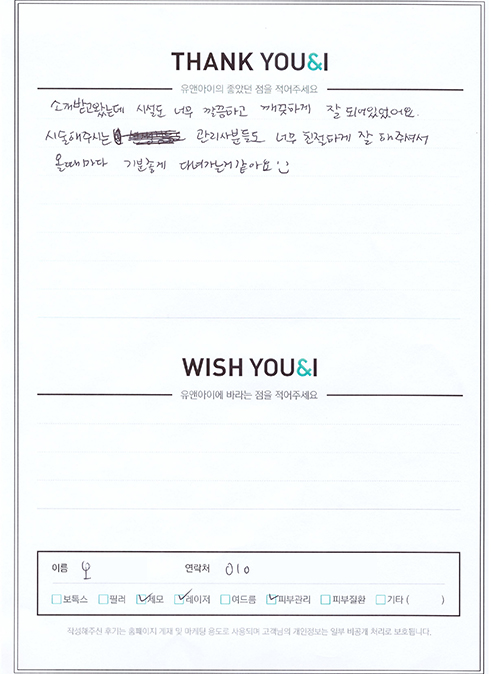 THANK YOU&I
유앤아이의 좋았던 점을 적어주세요
소개받고왔는데 시설도 너무 깔끔하고 깨끗하게 잘 되어있었어요.
시술해주시는 관리사분들도 너무 친절하게 잘 해주셔서
올때마다 기분좋게 다녀가는거같아요
WISH YOU&I
유앤아이에 바라는 점을 적어주세요
이름 연락처 010
보톡스 필러 제모 레이저 여드름 피부관리 피부질환 기타 ( )
작성해주신 후기는 홈페이지 게재 및 마케팅 용도로 사용되며 고객님의 개인정보는 일부 비공개 처리로 보호됩니다.